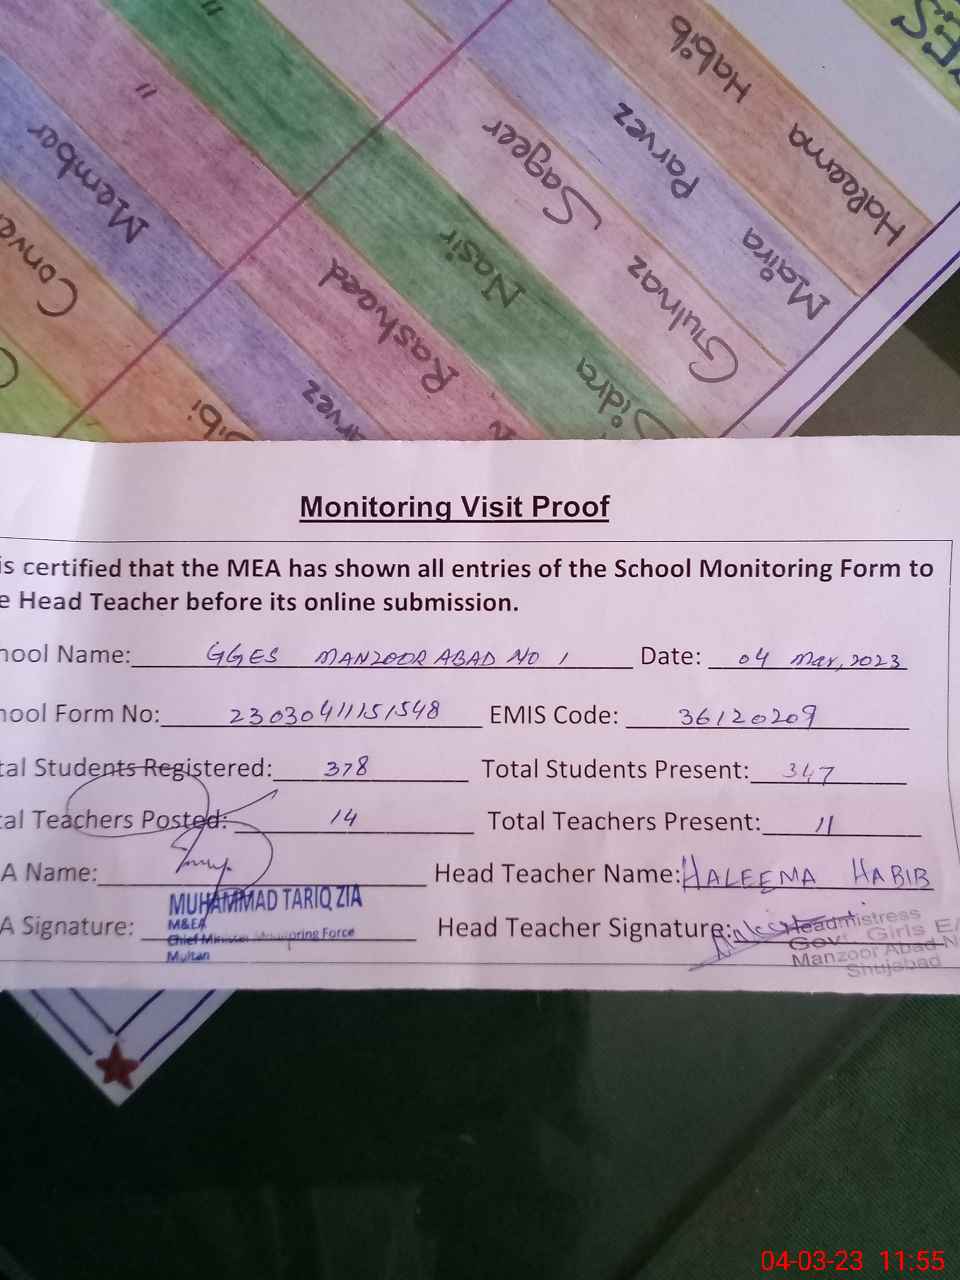 Haleema Habib
Maira Parvez
Gulnaz Sageer
Sidra Nasir "
Rasheed "
arvez Member
ibi Conve
Monitoring Visit Proof
is certified that the MEA has shown all entries of the School Monitoring Form to
e Head Teacher before its online submission.
hool Name: GGES MANZOOR ABAD NO 1 Date: 04 Mar, 2023
hool Form No: 23030411151548 EMIS Code: 36120209
tal Students Registered: 378 Total Students Present: 347
tal Teachers Posted: 14 Total Teachers Present: 11
A Name: Head Teacher Name: HALEEMA HABIB
MUHAMMAD TARIQ ZIA
M&EA
A Signature: Head Teacher Signature:
Chief Minister Monitoring Force
Multan
Headmistress
Gov: Girls E/
Manzoor Abad N
Shujabad
04-03-23 11:55